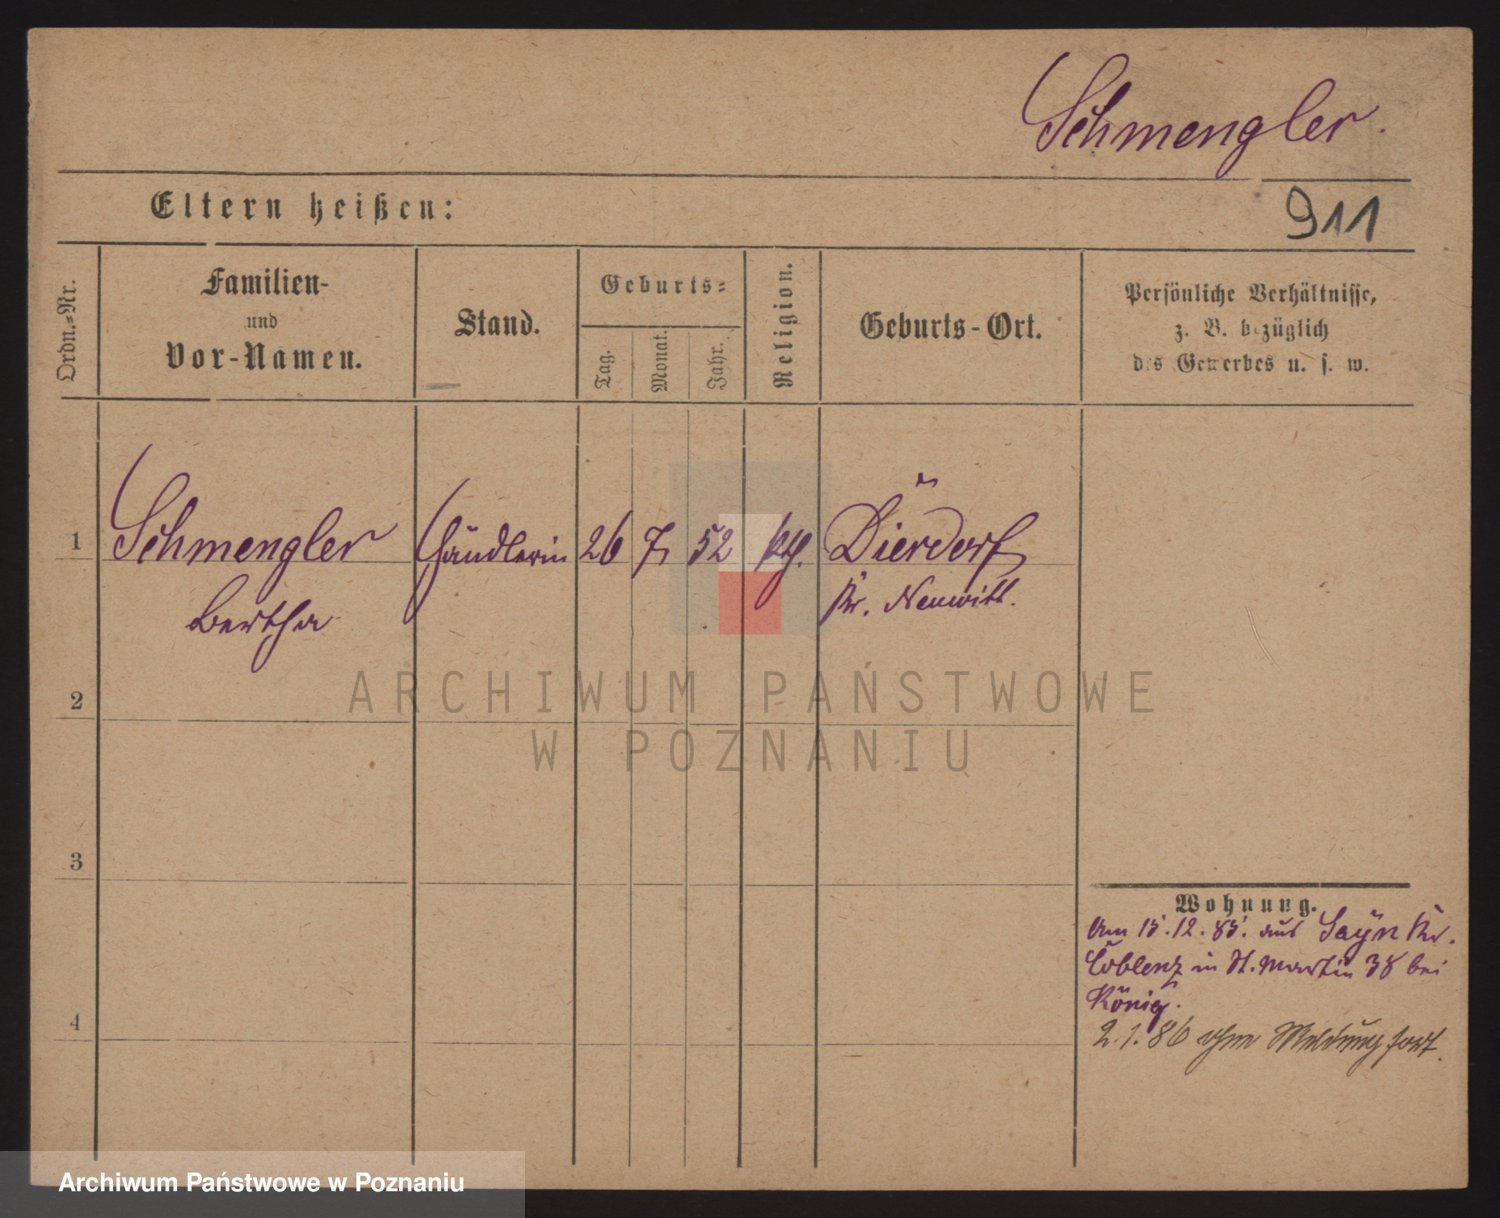 Schmengler.
Eltern heißen:
911
Ordn.-Nr.
Familien-
und
Vor-Namen.
Stand.
Geburts-
Tag.
Monat.
Jahr.
Religion.
Geburts-Ort.
Persönliche Verhältnisse,
z. B. bezüglich
des Gewerbes u. s. w.
1 Schmengler Händlerin 26 7 52 kth. Dierdorf
Bertha Kr. Neuwitt.
2
3
4
ARCHIWUM PAŃSTWOWE
W POZNANIU
Wohnung.
Am 15.12.85. aus Sayn Kr.
Coblenz in St. Martin 38 bei
König.
2.1.86 ohne Meldung fort.
Archiwum Państwowe w Poznaniu